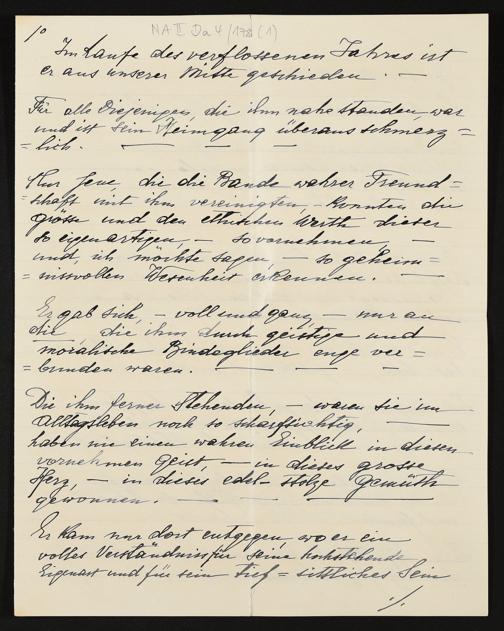 1º
NA II Da 4/178 (1)
Im Laufe des verflossenen Jahres ist
er aus unserer Mitte geschieden. —
Für alle Diejenigen, die ihm nahe standen, war
und ist sein Heimgang überaus schmerz=
=lich. — — —
Nur Jene, die die Bande wahrer Freund=
=schaft mit ihm vereinigten, – konnten die
grösse und den ethischen Werth dieser
so eigenartigen, – so vornehmen, —
und, ich möchte sagen, – so geheim=
=nissvollen Wesenheit erkennen. —
Er gab sich, – voll und ganz – nur an
die, die ihm durch geistige und
moralische Bindeglieder enge ver=
=bunden waren. — — —
Die ihm ferner Stehenden, – waren sie im
Alltagsleben noch so scharfsichtig, —
haben nie einen wahren Einblick in diesen
vornehmen Geist, – in dieses grosse
Herz, – in dieses edel-stolze Gemüth
gewonnen. — — —
Er kam nur dort entgegen, wo er ein
volles Verständniss für seine hochstehende
Eigenart und für sein tief=sittliches Sein
./.